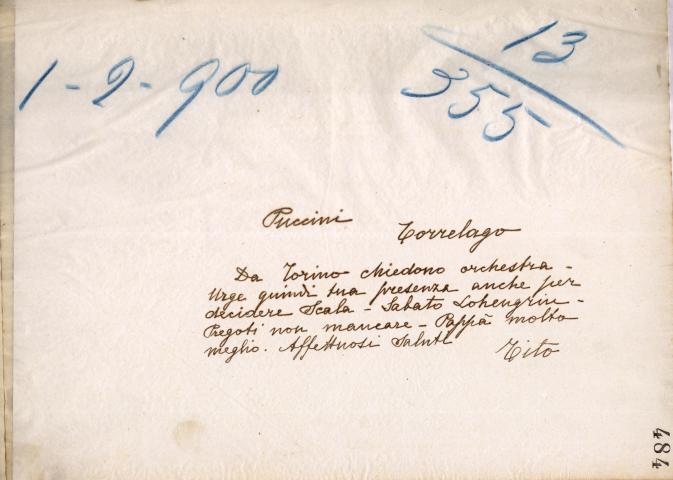 1-2-900
13
355
Puccini Torrelago
Da Torino chiedono orchestra -
Urge quindi tua presenza anche per
decidere Scala - Sabato Lohengrin -
Pregoti non mancare - Pappà molto
meglio. Affettuosi Saluti
Tito
484